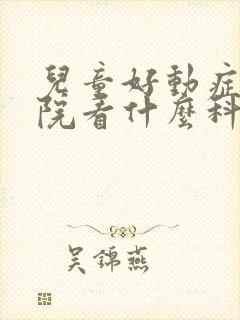 兒童好動症
院看什麼科
吳錦燕